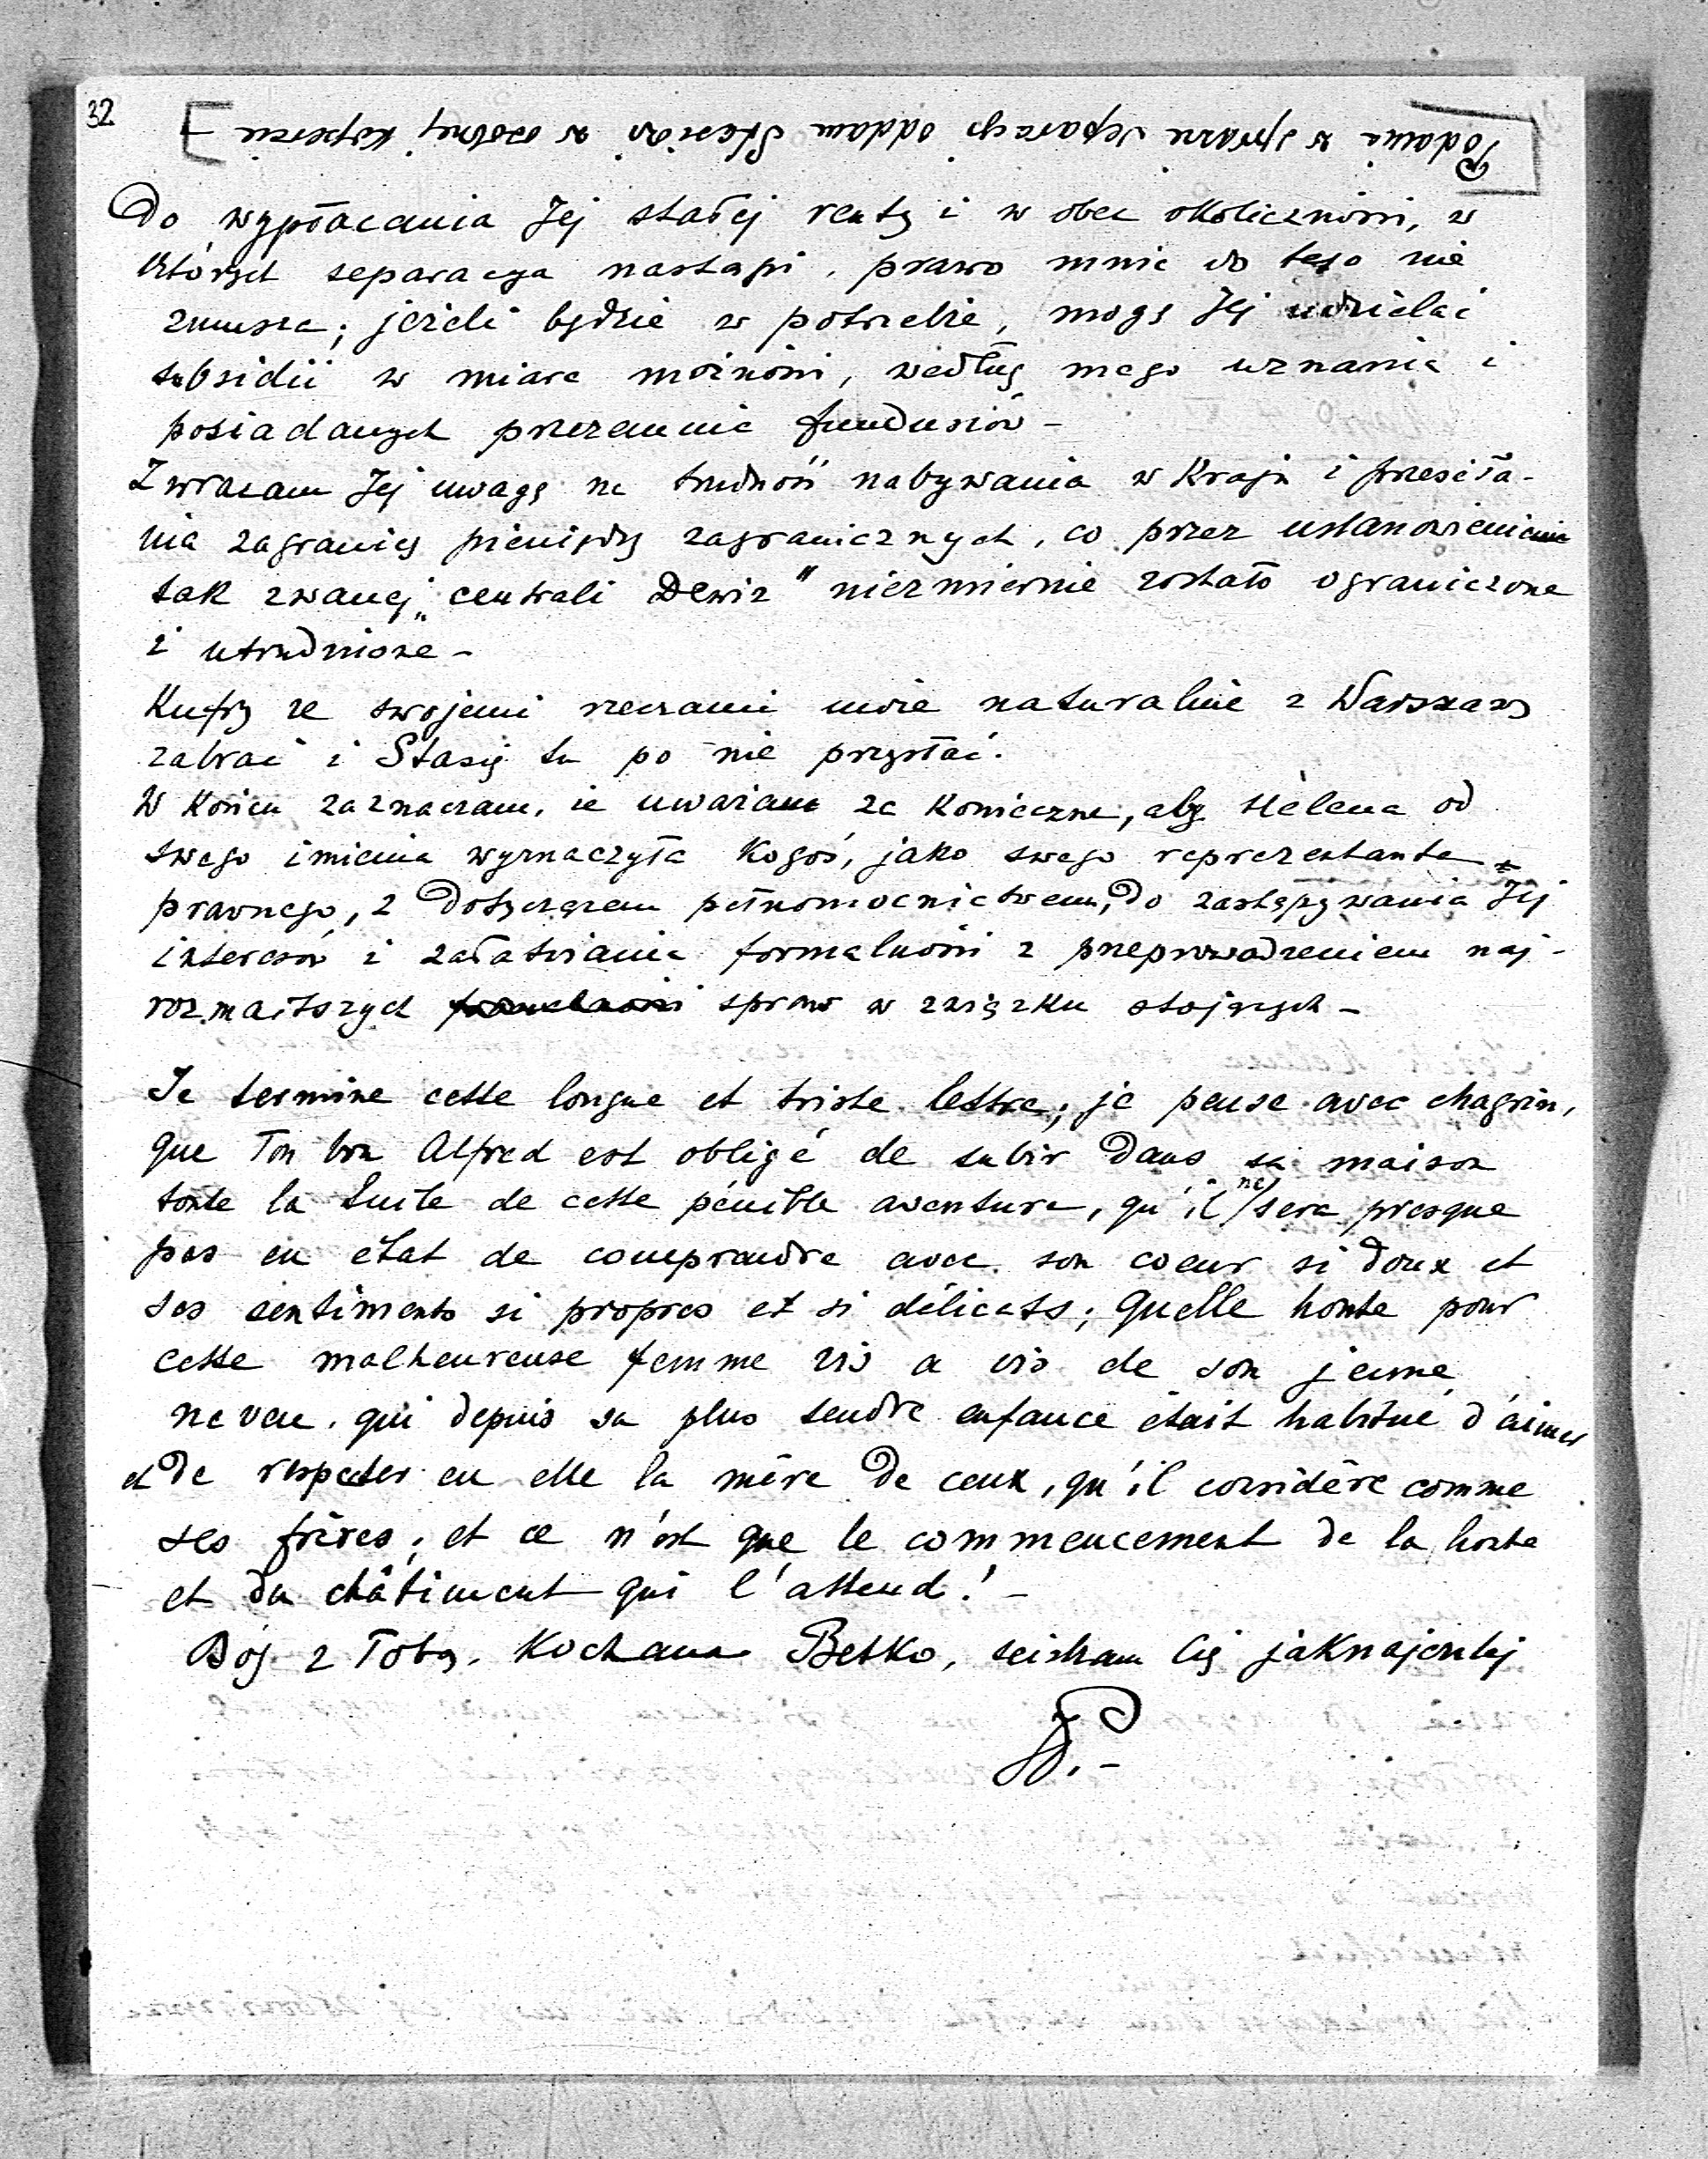 32
[Podania w sprawie separacyi oddam Stasiowi w osobnej kopercie –]
Do wypłacania Jej stałej renty i w obec okoliczności, w
których separacya nastąpi, prawo mnie do tego nie
zmusza; jeżeli będzie w potrzebie, mogę Jej udzielać
subsidii w miarę możności, według mego uznania i
posiadanych przezemnie funduszów –
Zwracam Jej uwagę na trudność nabywania w Kraju i przesiła-
nia zagranicę pieniędzy zagranicznych, co przez ustanowienie
tak zwanej „centrali Dewiz" niezmiernie zostało ograniczone
i utrudnione –
Kufry ze swojemi rzeczami może naturalnie z Warszawy
zabrać i Stasię tu po nie przysłać.
W Końcu zaznaczam, że uważam za Konieczne, aby Helena od
swego imienia wyznaczyła Kogoś, jako swego reprezentanta
prawnego, z Dotyczącem pełnomocnictwem, Do zastępywania Jej
interesów i załatwiania formalności z przeprowadzeniem naj-
rozmaitszych spraw w związku stojących –
Je termine cette longue et triste lettre; je pense avec chagrin,
que Ton bon Alfred est obligé de subir Dans sa maison
toute la suite de cette pénible aventure, qu'il ne sera presque
pas en état de comprendre avec son coeur si doux et
ses sentiments si propres et si délicats; quelle honte pour
cette malheureuse femme vis a vis de son jeune
neveu, qui depuis sa plus tendre enfance était habitué d'aimer
et De respecter en elle la mère De ceux, qu'il considère comme
ses frères; et ce n'est que le commencement de la honte
et du châtiment qui l'attend! –
Bóg z Tobą, Kochana Betko, ściskam Cię jaknajczulej